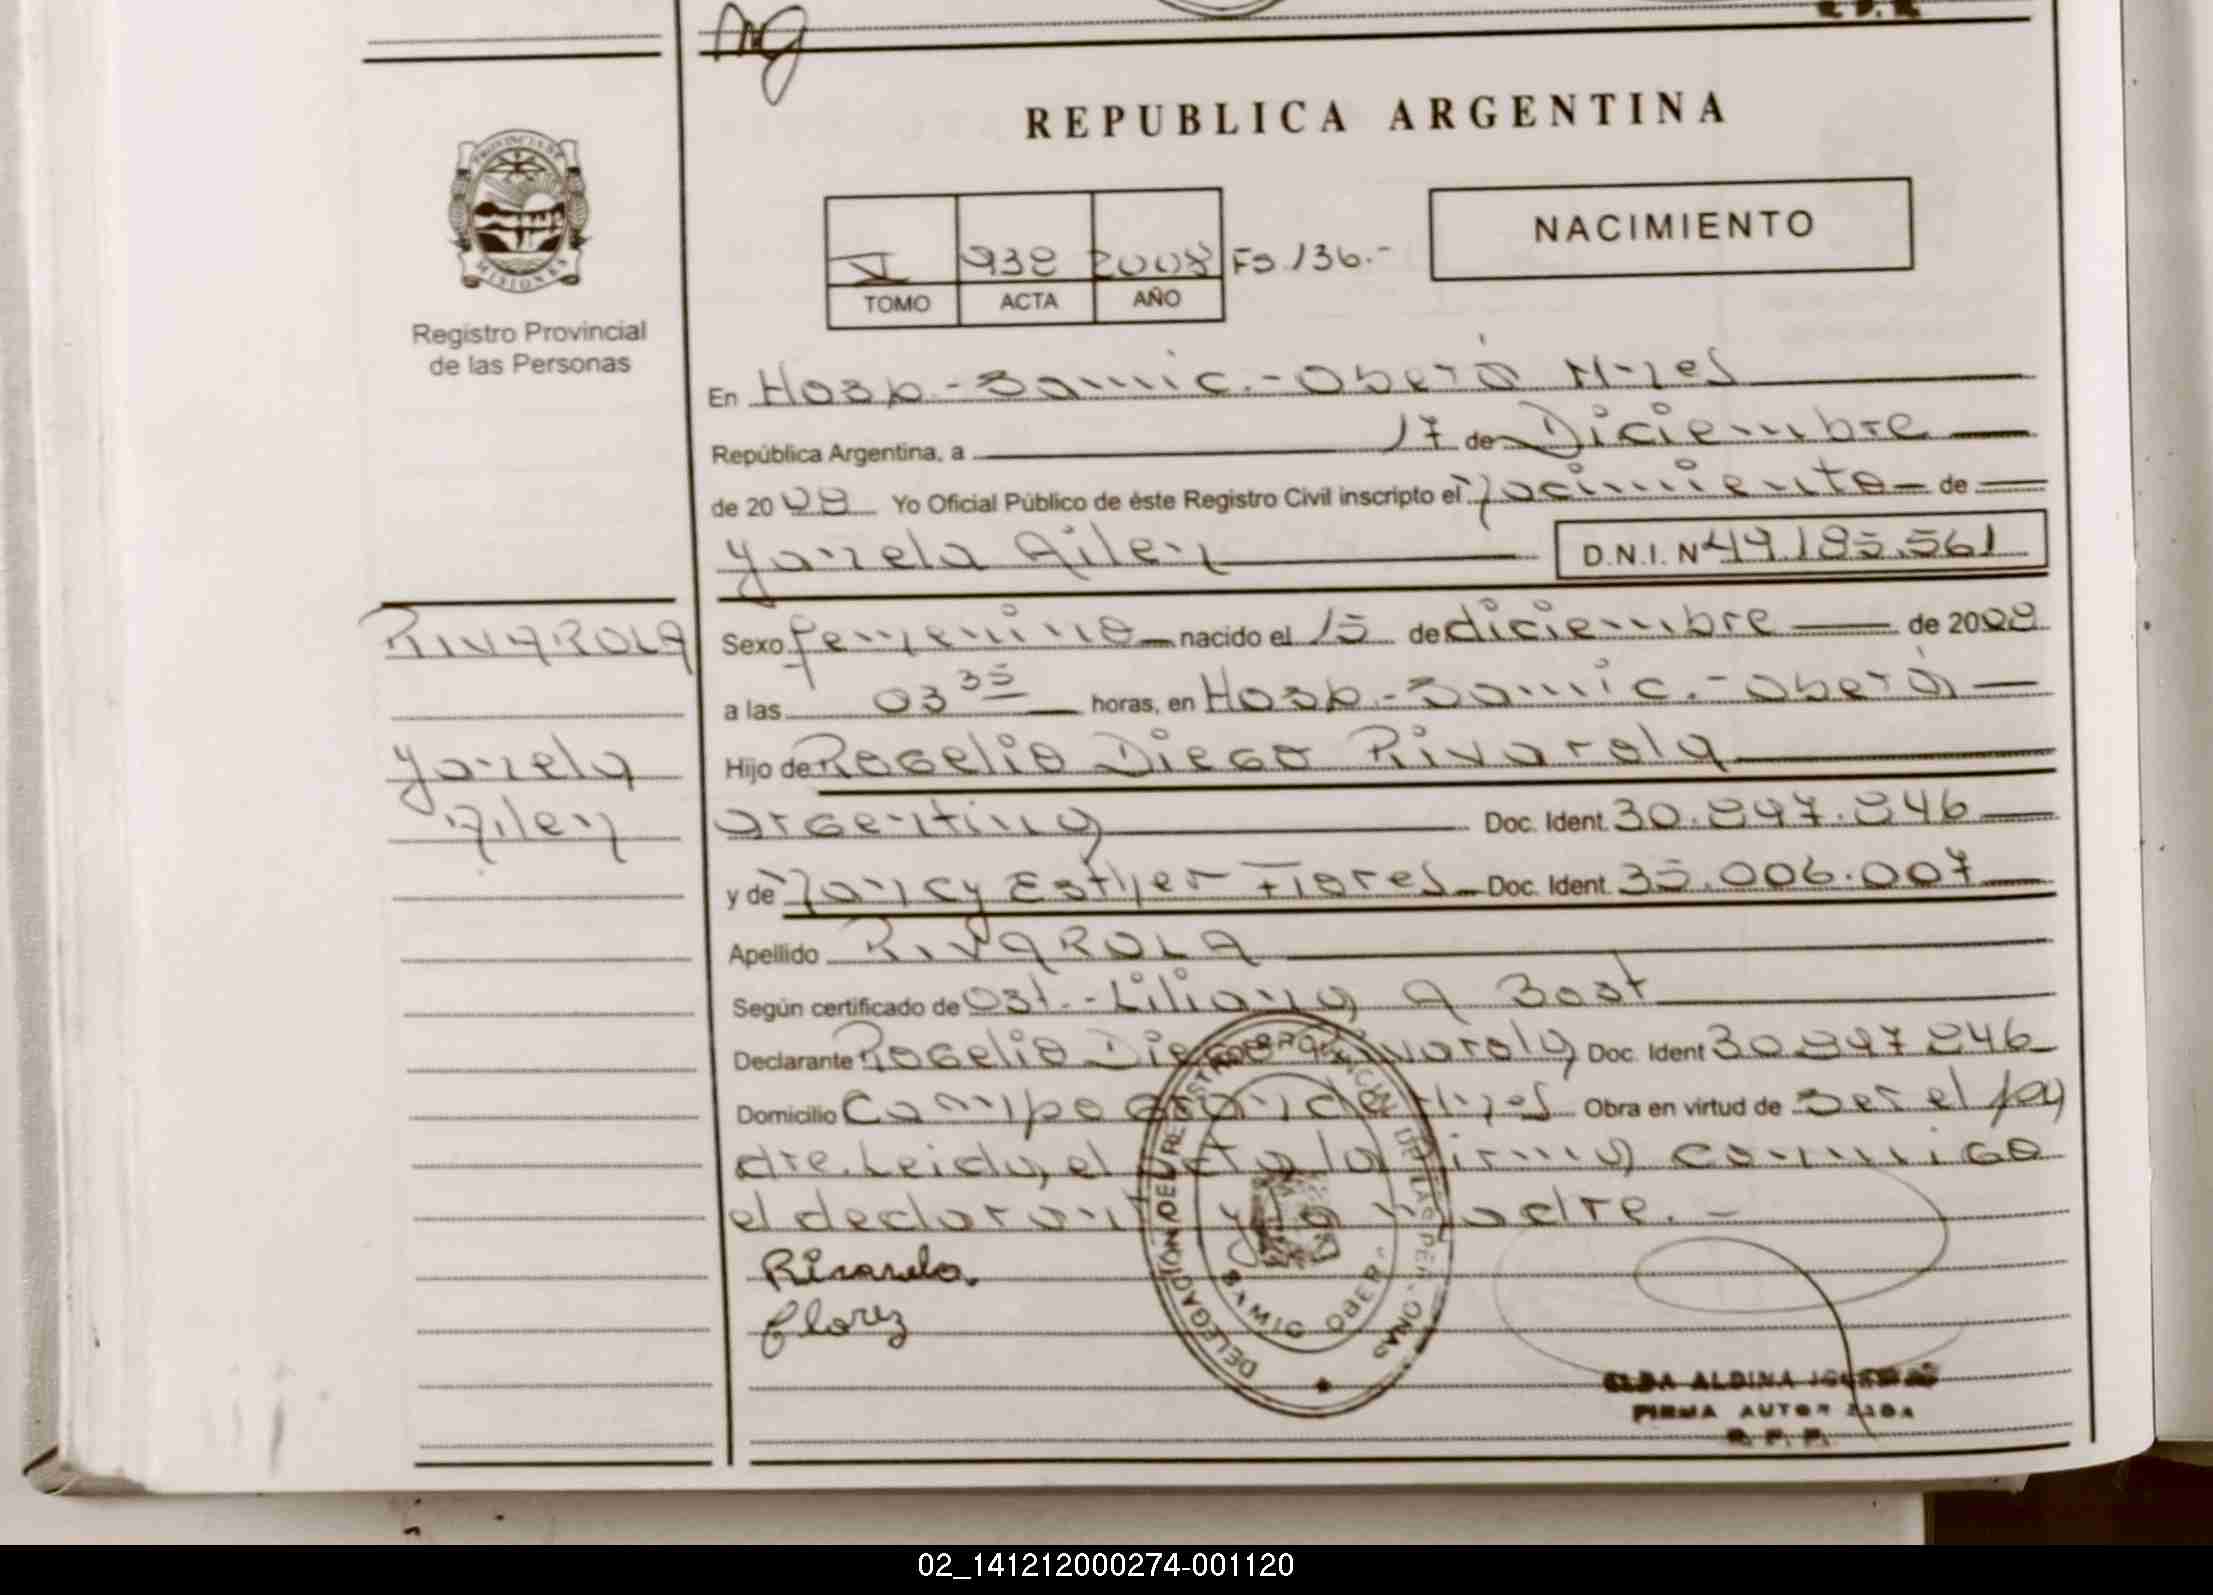 R.P.R.
REPUBLICA ARGENTINA
NACIMIENTO
PROVINCIA DE
MISIONES
VI 938 2008 Fo 136.-
TOMO ACTA AÑO
Registro Provincial
de las Personas
En Hosp.-Samic.-Oberá M-nes
República Argentina, a 17 de Diciembre
de 2008 Yo Oficial Público de éste Registro Civil inscripto el Nacimiento de
Yanzela Ailen D.N.I. Nº 49.185.561
RIVAROLA
Yanzela
Ailen
Sexo femenino nacido el 15 de diciembre de 2008
a las 03 35 horas, en Hosp.-Samic.-Oberá
Hijo de Rogelio Diego Rivarola
argentina Doc. Ident. 30.897.846
y de Nancy Esther Flores Doc. Ident. 35.006.007
Apellido RIVAROLA
Según certificado de Ost.-Liliana A Bost
Declarante Rogelio Diego Rivarola Doc. Ident 30.897.846
Domicilio Campo Grande Mnes Obra en virtud de Ser el pa
dre. Leida, el acta la firma conmigo
el declarante y la madre.-
DELEGACIÓN DEL REGISTRO PROVINCIAL DE LAS PERSONAS
SAMIC OBERÁ
Rivarola.
Florez
ELBA ALDINA IGLESIAS
FIRMA AUTORIZADA
R.P.P.
02_141212000274-001120